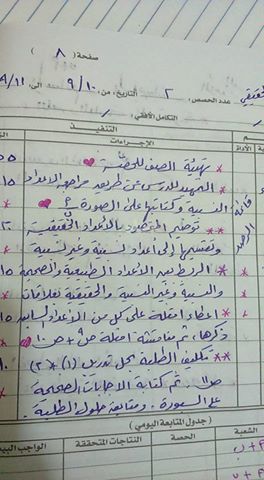 صفحة ( ٨ )
عدد الحصص: ٢ التاريخ: من: ٩/١٠ الى: ٩/١١
التكامل الأفقي:
التنفيذ
الإجراءات
الأداة
* تهيئة الصف للحصة
* التمهيد للدرس عن طريق مراجعة الأعداد
النسبية وكتابتها على الصورة
** توضيح المقصود بالأعداد الحقيقية
وتقسيمها إلى أعداد نسبية وغير نسبية
* الربط بين الأعداد الطبيعية والصحيحة
والنسبية وغير النسبية والحقيقية بعلاقات
* إعطاء أمثلة على كل من الأعداد السابق
ذكرها، ثم مناقشة أمثلة ص٩ + ص١٠
** تكليف الطلبة بحل تدريس (١) + (٢)
ص١١ ثم كتابة الاجابات الصحيحة
على السبورة. ومتابعة حلول الطلبة.
قائمة
الرصد
( جدول المتابعة اليومي )
الشعبة الحصة النتاجات المتحققة الواجب البيتي